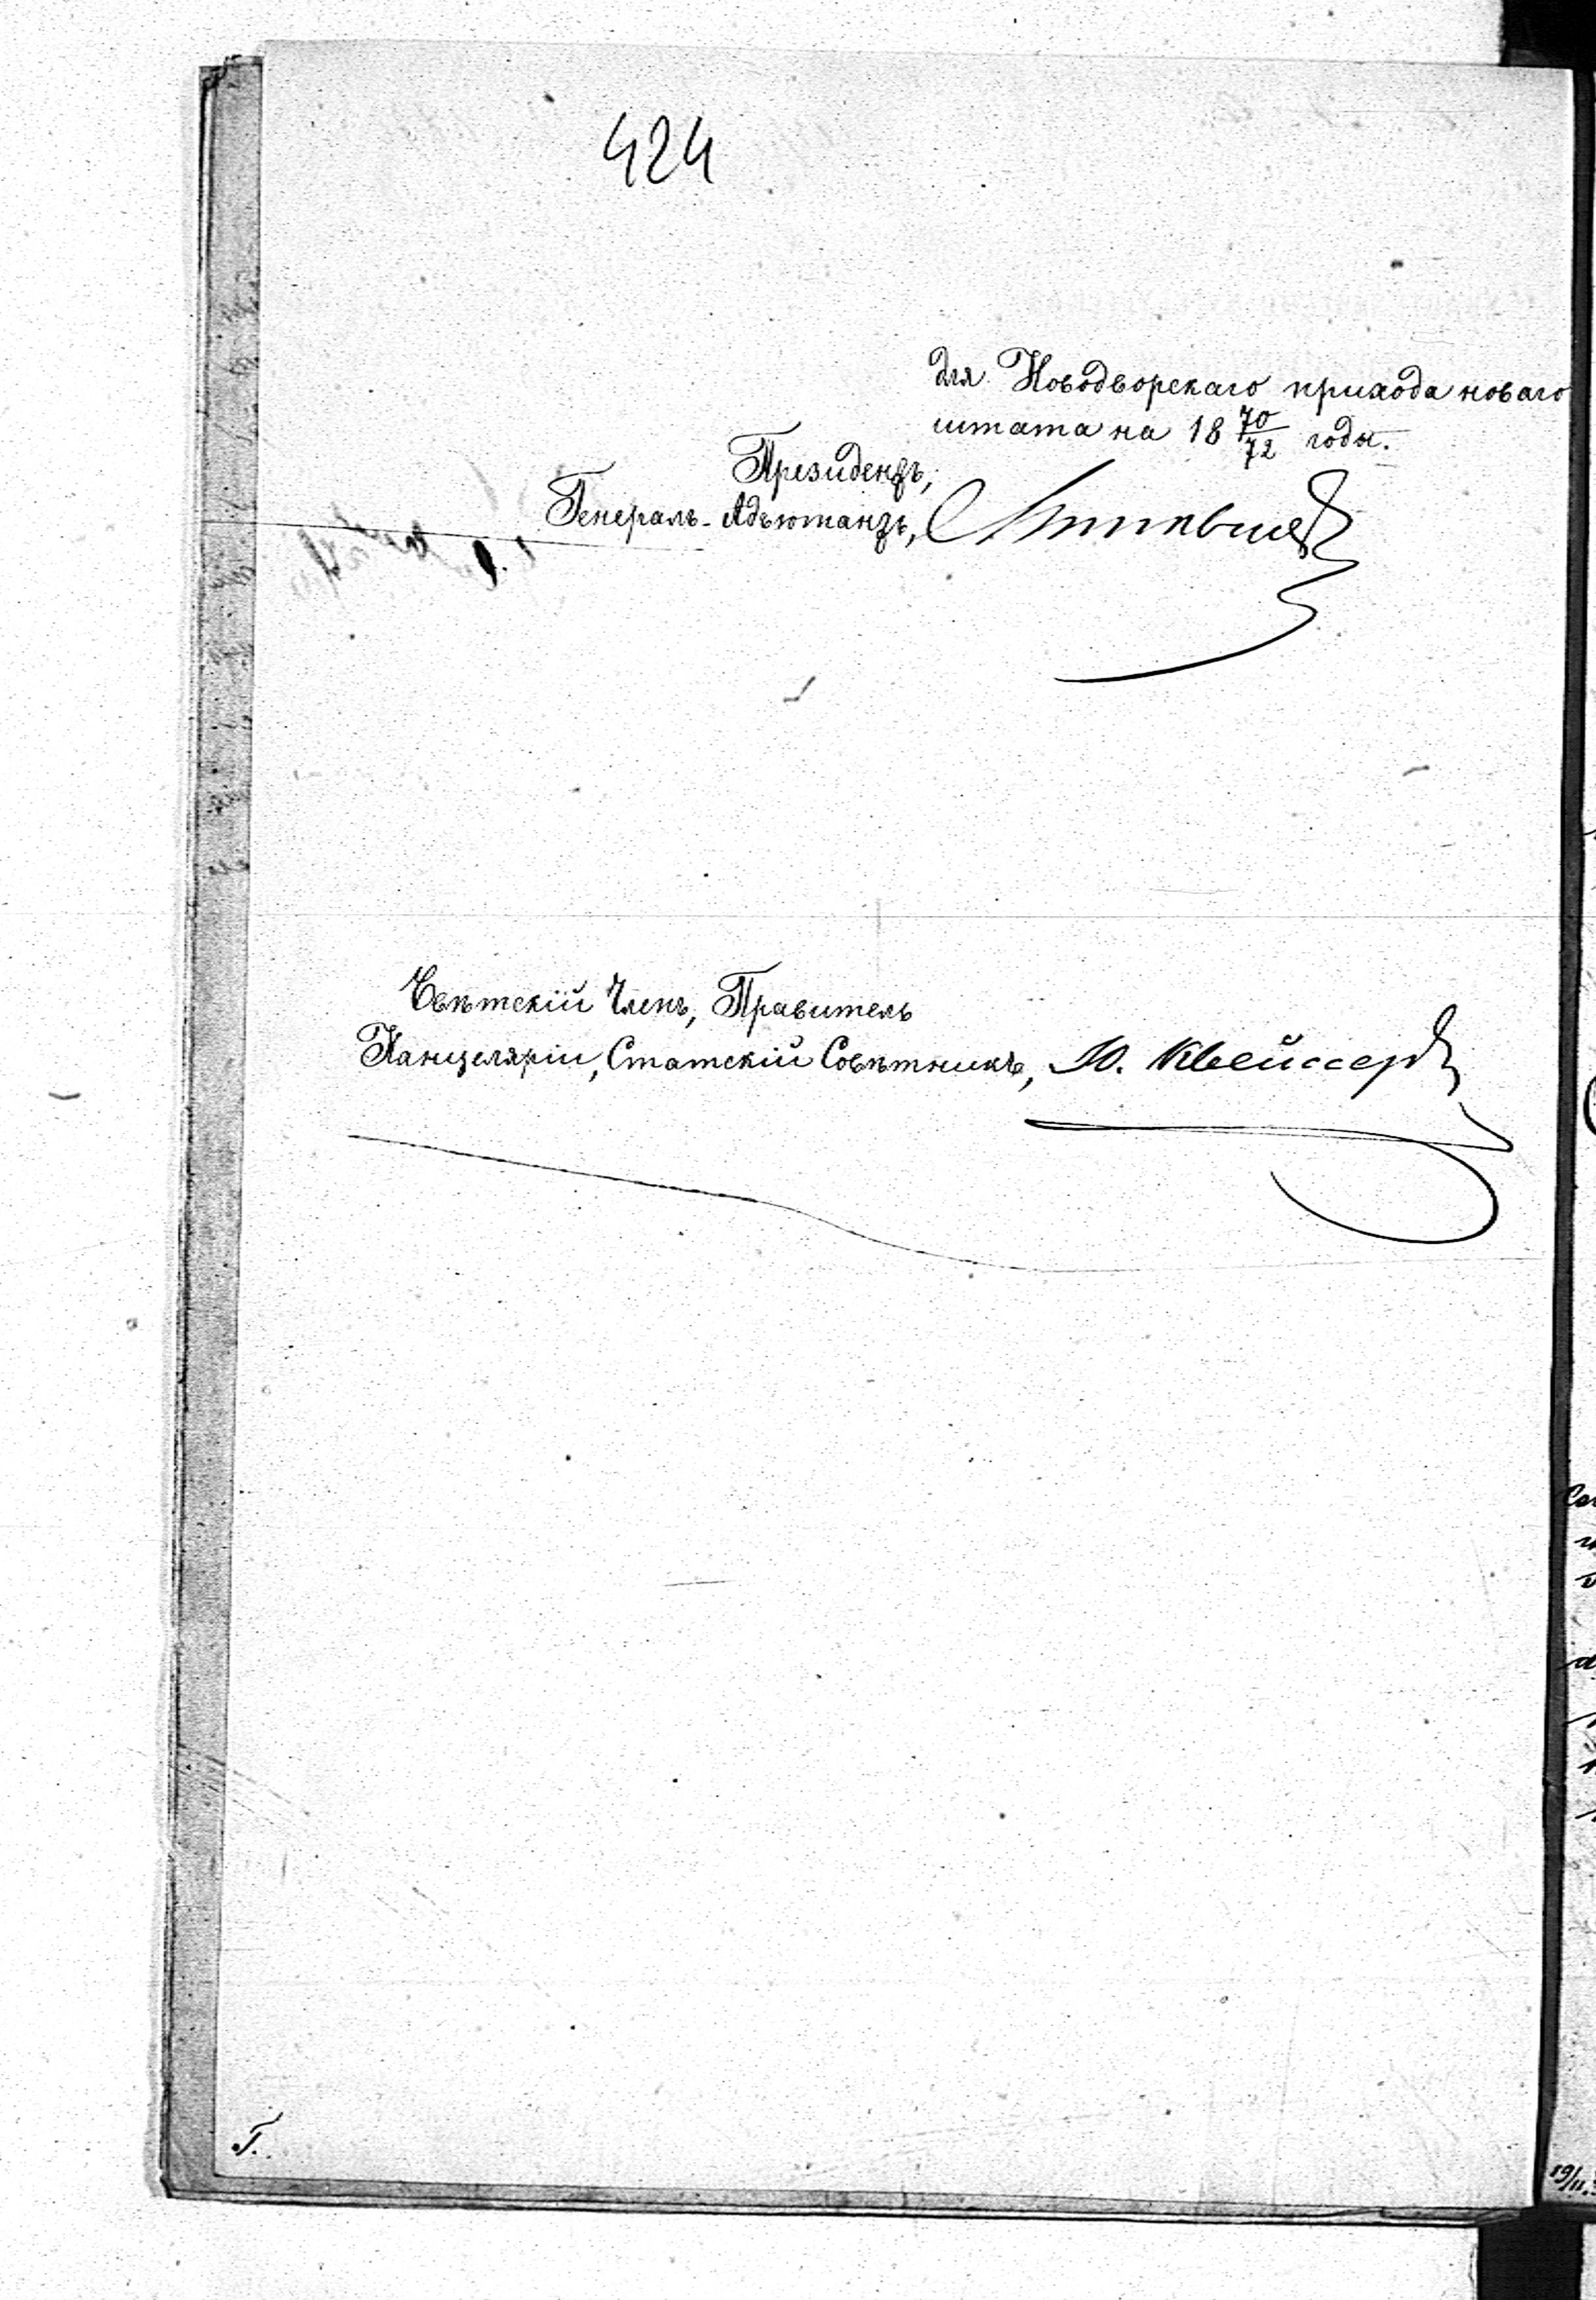 424
для Новодворскаго прихода новаго
штата на 18 70/72 годы.
Президентъ,
Генералъ-Адъютантъ,
Свѣтскій Членъ, Правитель
Канцеляріи, Статскій Совѣтникъ, Ю. Квейссеръ
Г.
19/11.